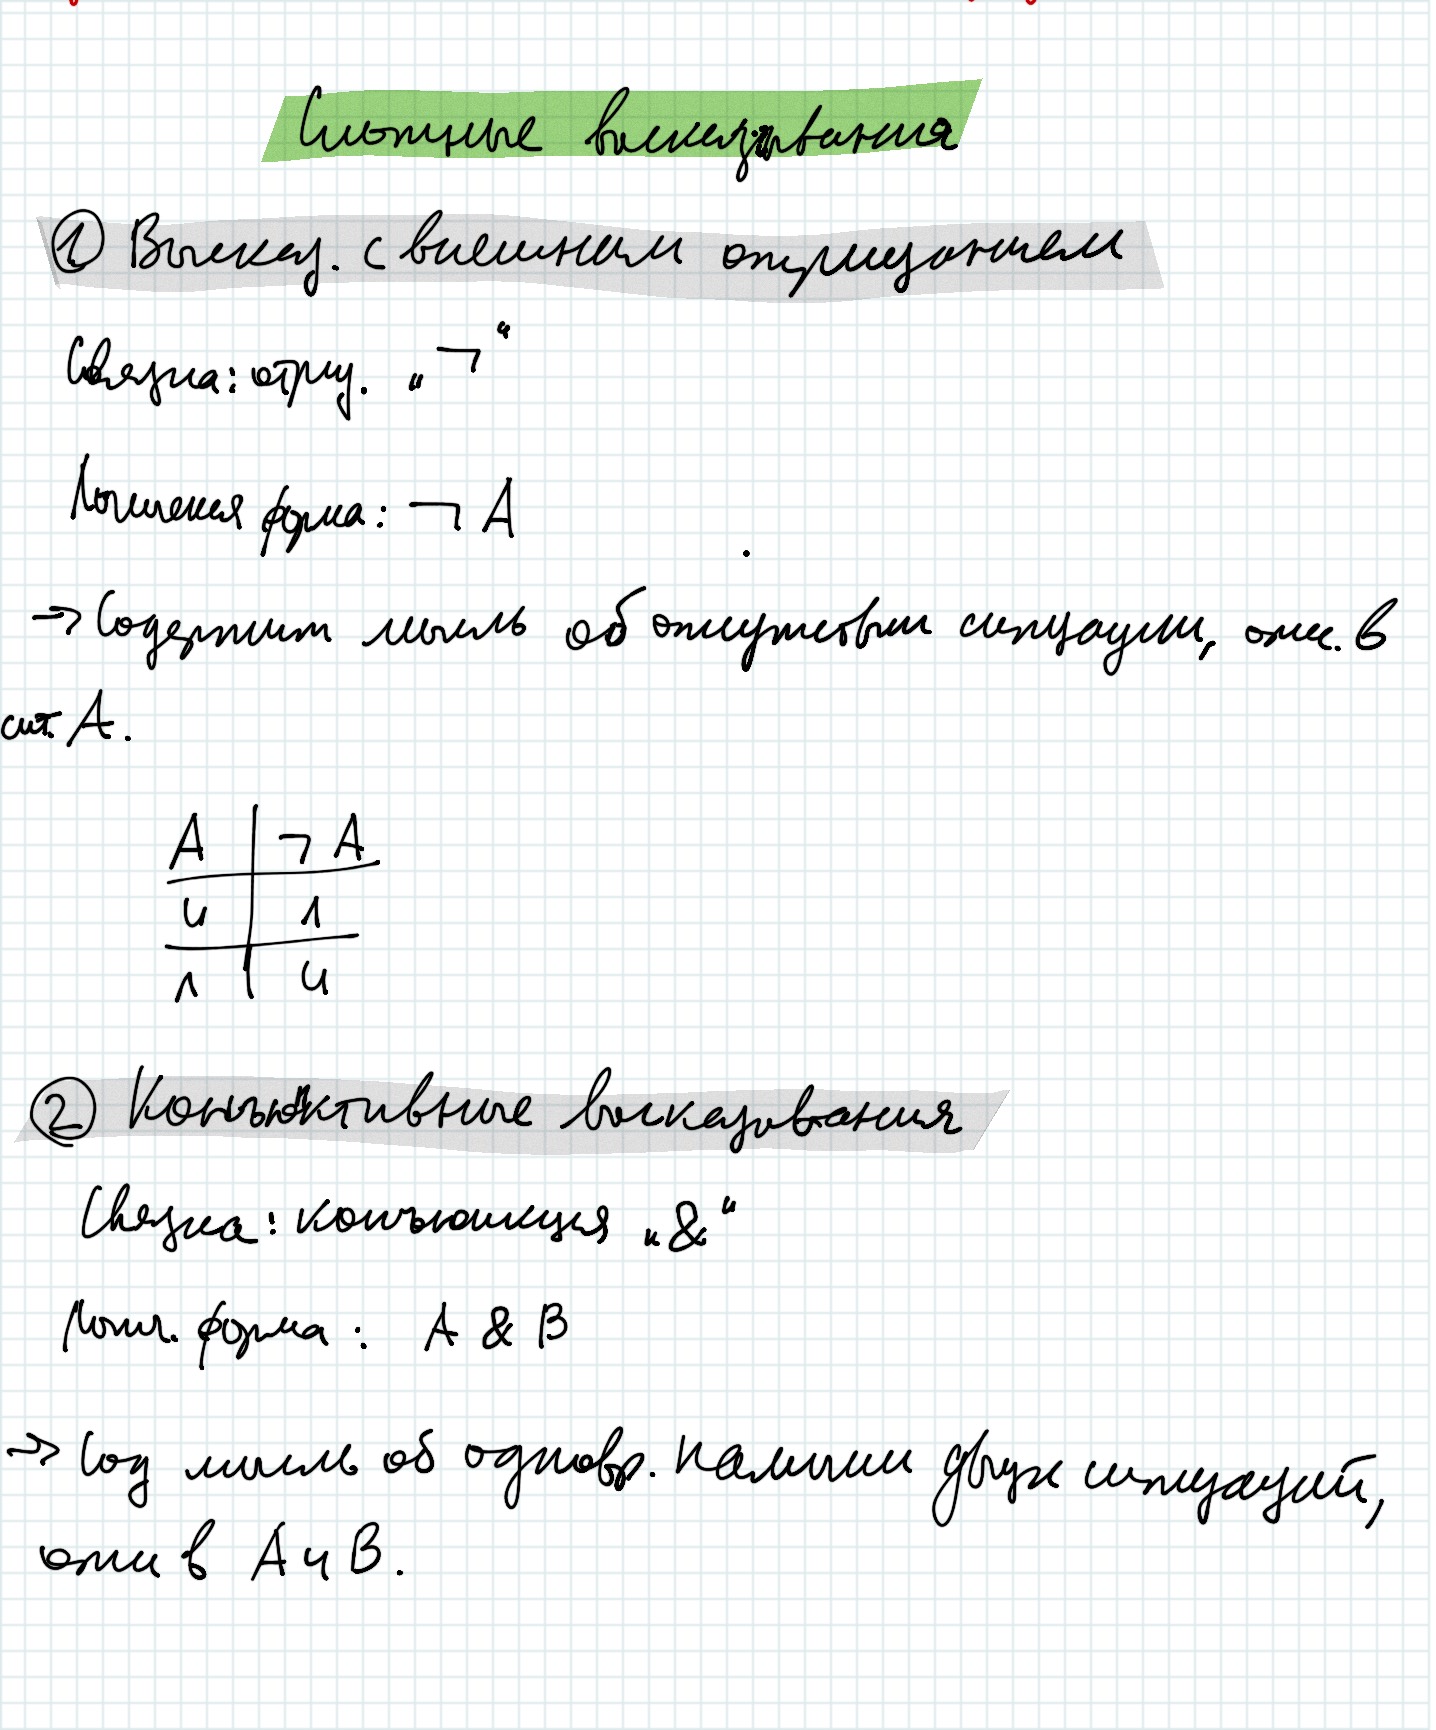 Сложные высказывания
① Высказ. с внешним отрицанием
Связка: отриц. „¬“
Логическая форма: ¬ A
→ Содержит мысль об отсутствии ситуации, опис. в
сит. A.
A | ¬ A
и | л
л | и
② Конъюнктивные высказывания
Связка: конъюнкция „&“
Логич. форма: A & B
→ Сод мысль об одновр. наличии двух ситуаций,
опис в A и B.